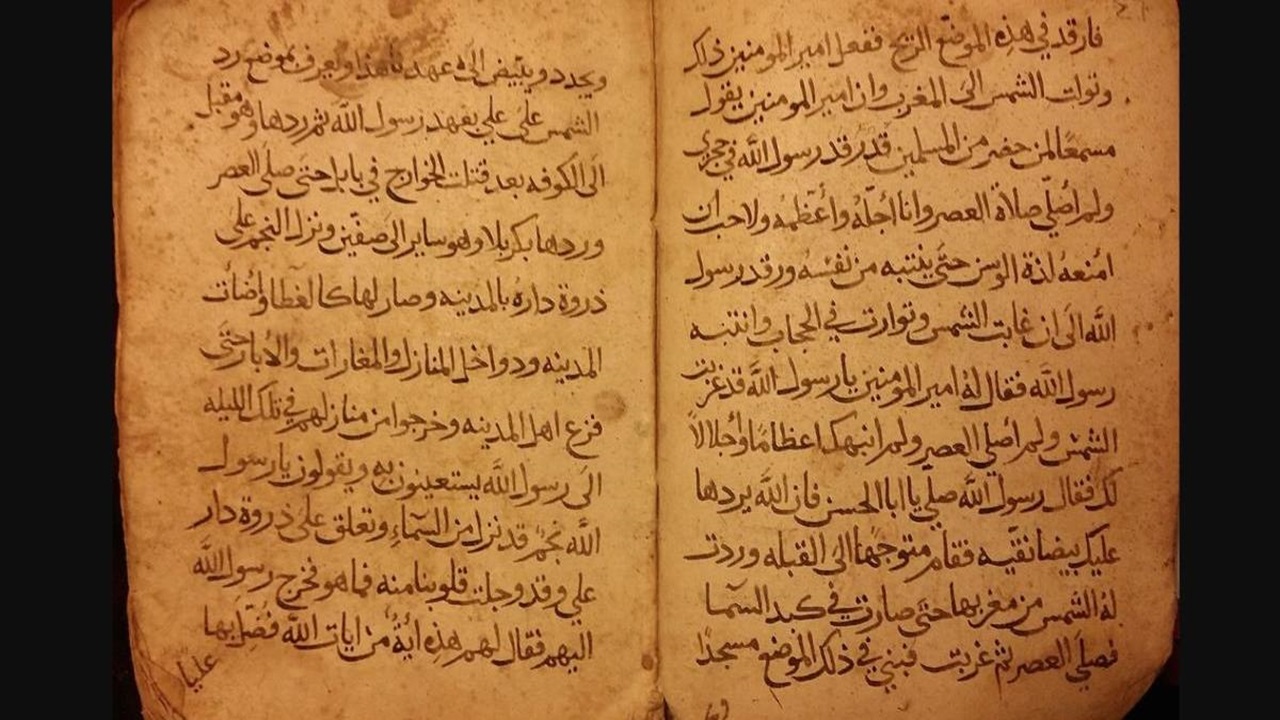 فارقد في هذه الموضع الزيح ففعل امير المومنين ذلك
وتوات الشمس الى المغرب وان امير المومنين يقول
مسمعا لمن حضر من المسلمين قد رقد رسول الله في حجري
ولم اصلي صلاة العصر وانا اجله واعظمه ولا احب ان
امنعه لذة الوسن حتى ينتبه من نفسه ورقد رسول
الله الى ان غابت الشمس وتوارت في الحجاب وانتبه
رسول الله فقال له امير المومنين يا رسول الله قد غربت
الشمس ولم اصلي العصر ولم انبهك اعظاما واجلالاً
لك فقال رسول الله صلي يا ابا الحسن فان الله يردها
عليك بيضا نقيه فقام متوجها الى القبله وردت
له الشمس من مغربها حتى صارت في كبد السما
فصلي العصر ثم غربت فبني في ذلك الموضع مسجدا
ويجدد ويبيض الى عهدنا هذا ويعرف بموضع رد
الشمس على علي بعهد رسول الله ثم ردها وهو مقبل
الى الكوفه بعد قتلت الخوارج في بابل حتى صلى العصر
وردها بكربلا وهو ساير الى صفين ونزل النجم على
ذروة داره بالمدينه وصار لها كالغطا واضات
المدينه ودواخل المنازل والمغارات والابار حتى
فزع اهل المدينه وخرجوا من منازلهم في تلك الليله
الى رسول الله يستعينون به ويقولون يا رسول
الله نجم قد نزل من السماء وتعلق على ذروة دار
علي وقد وجلت قلوبنا منه فما هو فخرج رسول الله
اليهم فقال لهم هذه اية من ايات الله فضل بها
عليا